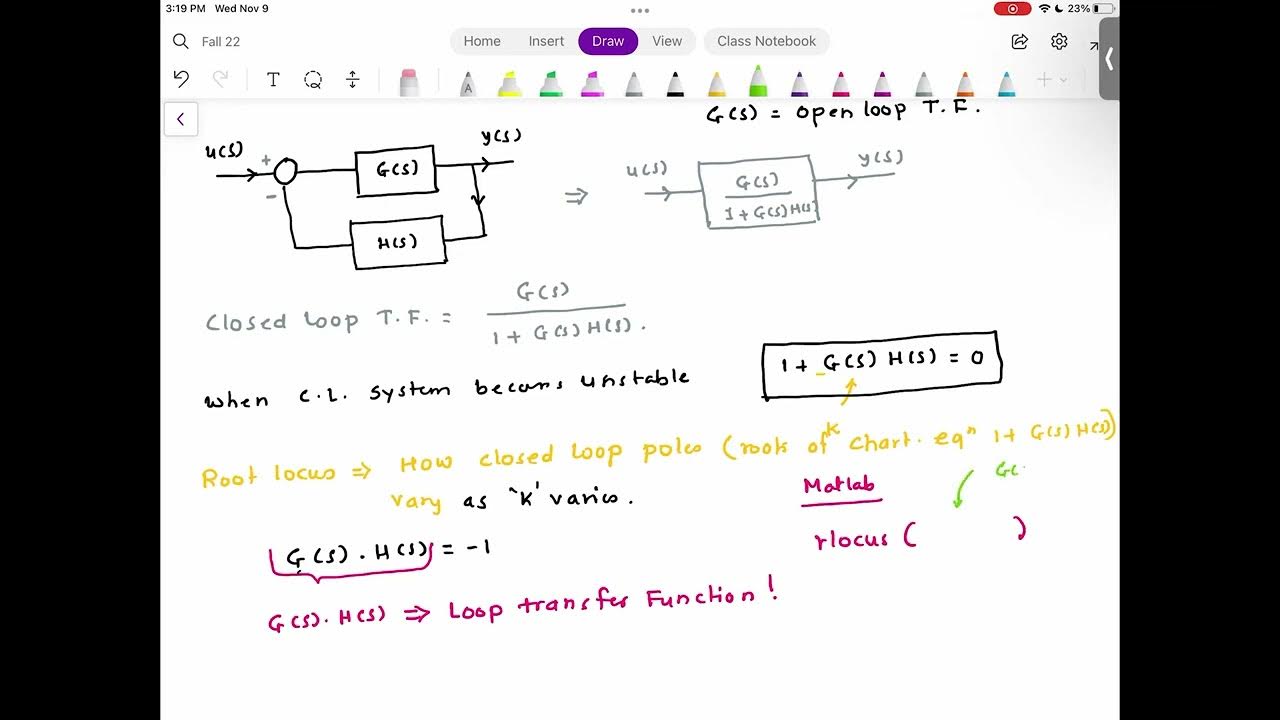 3:19 PM Wed Nov 9
23%
Fall 22
Home Insert Draw View Class Notebook
T
A
G(s) = open loop T.F.
u(s) + - G(s) y(s)
H(s)
⇒ u(s) G(s) / 1 + G(s) H(s) y(s)
Closed loop T.F. = G(s) / 1 + G(s) H(s).
1 + G(s) H(s) = 0
when C.L. system becoms unstable
K
Root locus ⇒ How closed loop poles (roots of chart. eqⁿ 1 + G(s) H(s))
vary as 'K' varies.
Matlab
G(
rlocus ( )
G(s) . H(s) = -1
G(s). H(s) ⇒ Loop transfer Function!